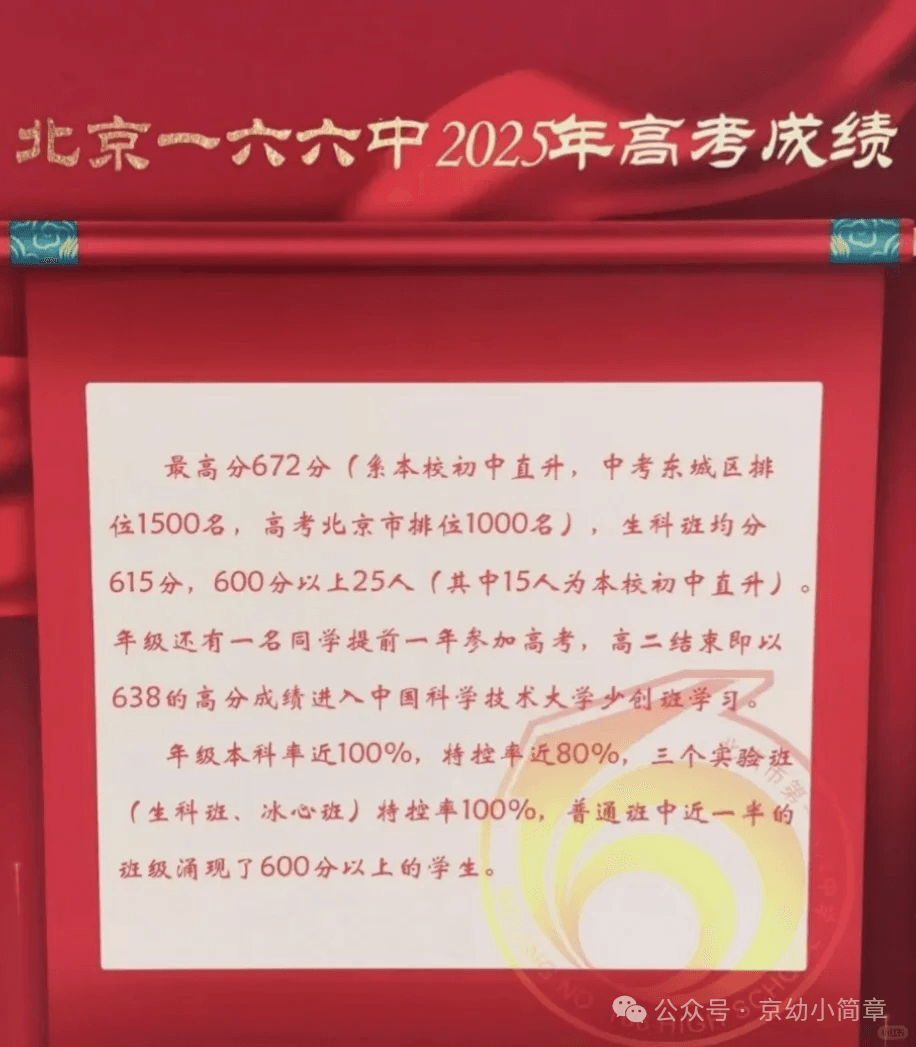 北京一六六中2025年高考成绩
最高分672分（系本校初中直升，中考东城区排
位1500名，高考北京市排位1000名），生科班均分
615分，600分以上25人（其中15人为本校初中直升）。
年级还有一名同学提前一年参加高考，高二结束即以
638的高分成绩进入中国科学技术大学少创班学习。
年级本科率近100%，特控率近80%，三个实验班
（生科班、冰心班）特控率100%，普通班中近一半的
班级涌现了600分以上的学生。
公众号·京幼小简章
小红书